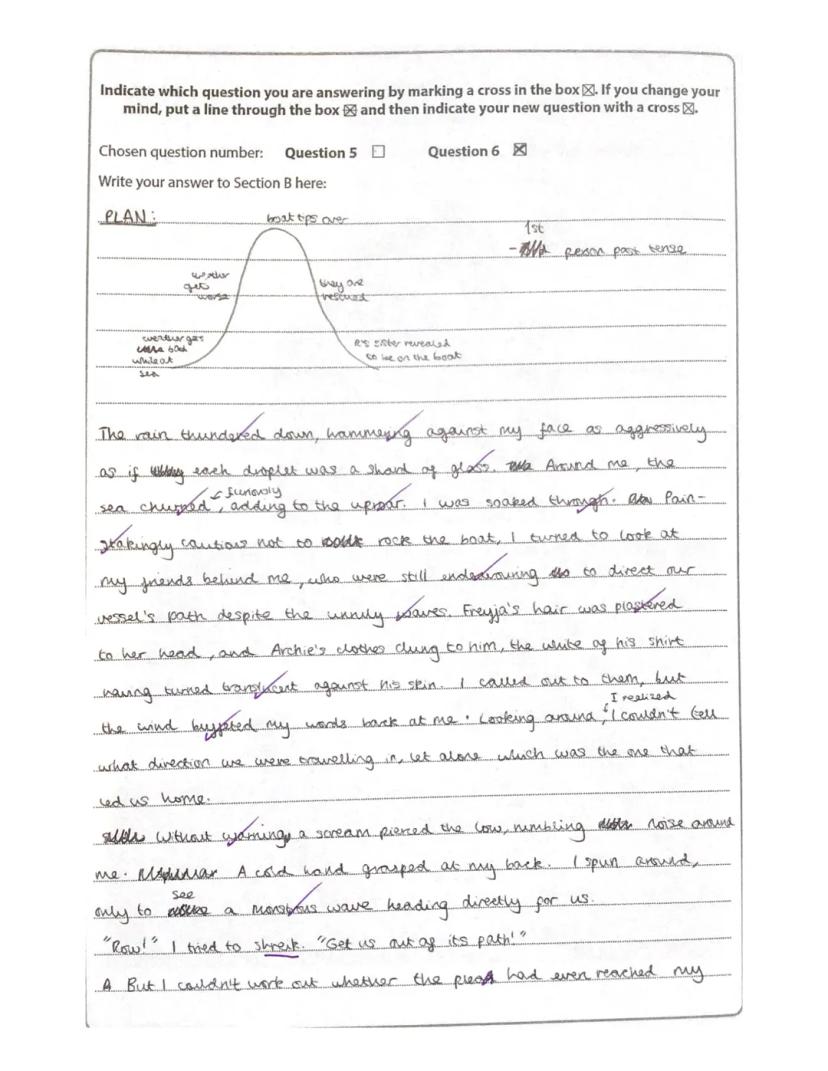 Indicate which question you are answering by marking a cross in the box ☒. If you change your
mind, put a line through the box ☒ and then indicate your new question with a cross ☒.
Chosen question number: Question 5 ☐ Question 6 ☒
Write your answer to Section B here:
PLAN:
boat tips over
1st
- person past tense
weather
gets
worse
they are
rescued
weather gets
bad
while at
sea
sister revealed
to be on the boat
The rain thundered down, hammering against my face as aggressively
as if each droplet was a shard of glass. Around me, the
furiously
sea churned, adding to the uproar. I was soaked through. Pain-
stakingly cautious not to rock the boat, I turned to look at
my friends behind me, who were still endeavouring to direct our
vessel's path despite the unruly waves. Freyja's hair was plastered
to her head, and Archie's clothes clung to him, the white of his shirt
having turned translucent against his skin. I called out to them, but
I realized
the wind buffeted my words back at me. Looking around, I couldn't tell
what direction we were travelling in, let alone which was the one that
led us home.
Without warning, a scream pierced the low, rumbling noise around
me. A cold hand grasped at my back. I spun around,
see
only to a monstrous wave heading directly for us.
"Row!" I tried to shreik. "Get us out of its path!"
A But I couldn't work out whether the plea had even reached my